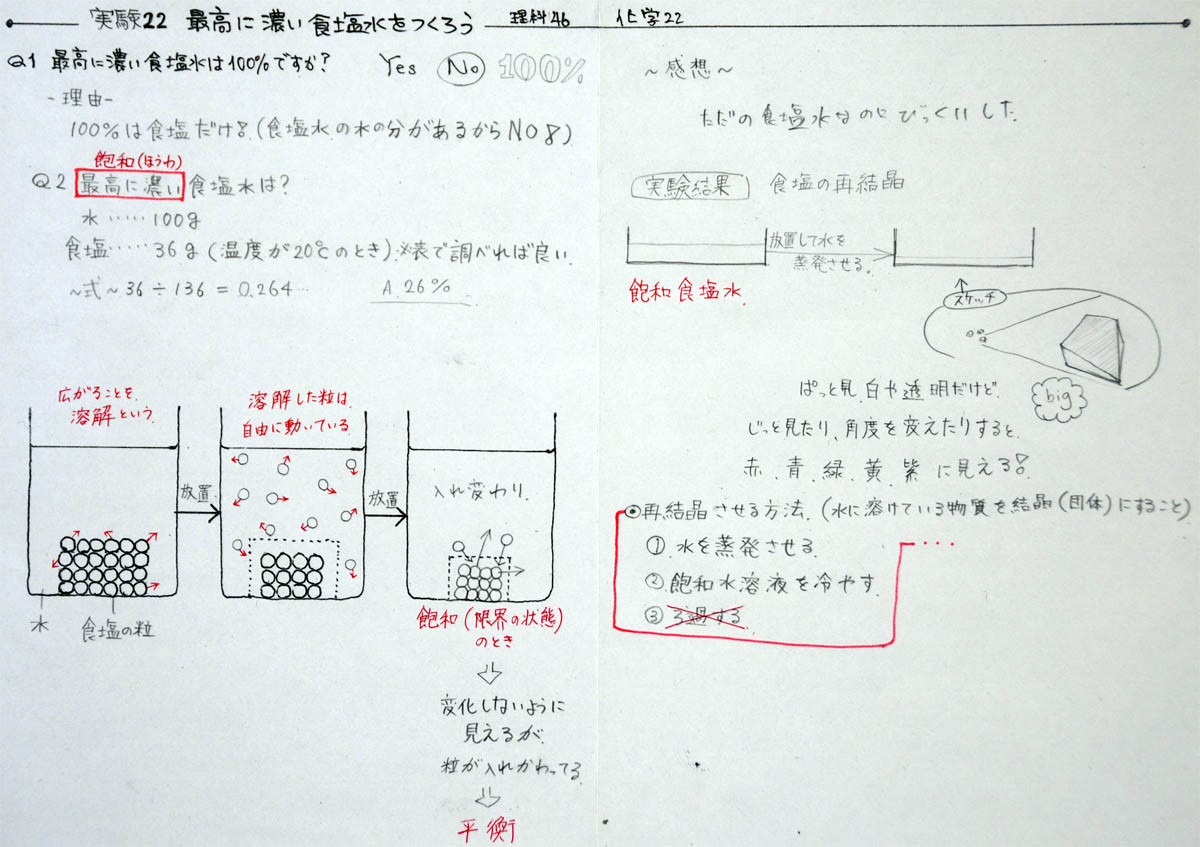 実験22 最高に濃い食塩水をつくろう 理科46 化学22
Q1 最高に濃い食塩水は100%ですか? Yes No 100%
-理由-
100%は食塩だけ!(食塩水の水の分があるからNO!)
飽和(ほうわ)
Q2 最高に濃い食塩水は?
水……100g
食塩……36g(温度が20℃のとき)※表で調べれば良い.
~式~ 36÷136=0.264… A.26%
広がることを
溶解という.
溶解した粒は
自由に動いている
放置
放置
入れ変わり.
水
食塩の粒
飽和(限界の状態)
のとき
変化しないように
見えるが.
粒が入れかわってる
平衡
~感想~
ただの食塩水なのにびっくりした.
実験結果 食塩の再結晶
放置して水を
蒸発させる.
飽和食塩水.
スケッチ
big
ぱっと見.白や透明だけど.
じっと見たり、角度を変えたりすると.
赤、青、緑、黄、紫に見える!
◉再結晶させる方法.(水に溶けている物質を結晶(固体)にすること)
① 水を蒸発させる.
② 飽和水溶液を冷やす.
③ ろ過する.